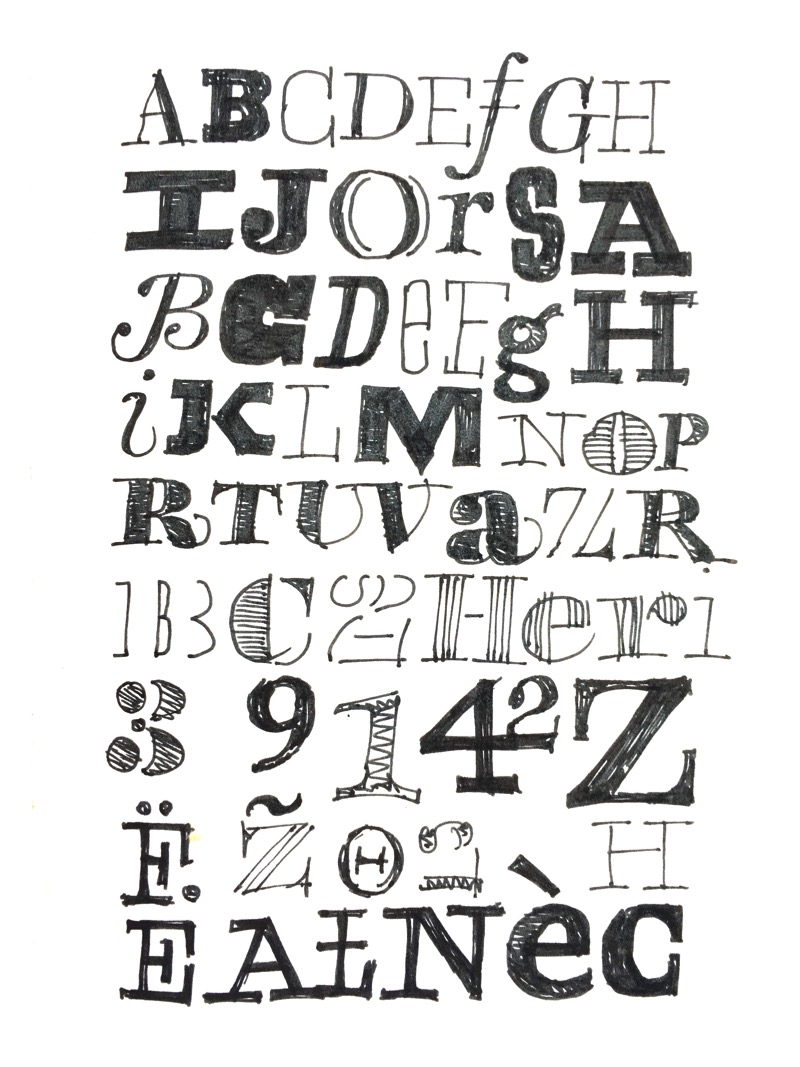 ABCDEfGH
IJOrSA
BGDeEgH
iKLMNOP
RTUVaZR.
1B3C2Her1
8 9142Z
Ë. Z̃ΘH
EAŁNèC